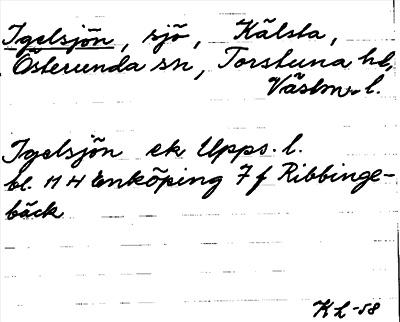 Igelsjön, sjö, Kälsta,
Österunda sn, Torstuna hd,
Västm. l.
Igelsjön ek Upps. l.
bl. 11 H Enköping 7 f Ribbinge-
bäck
KL -58